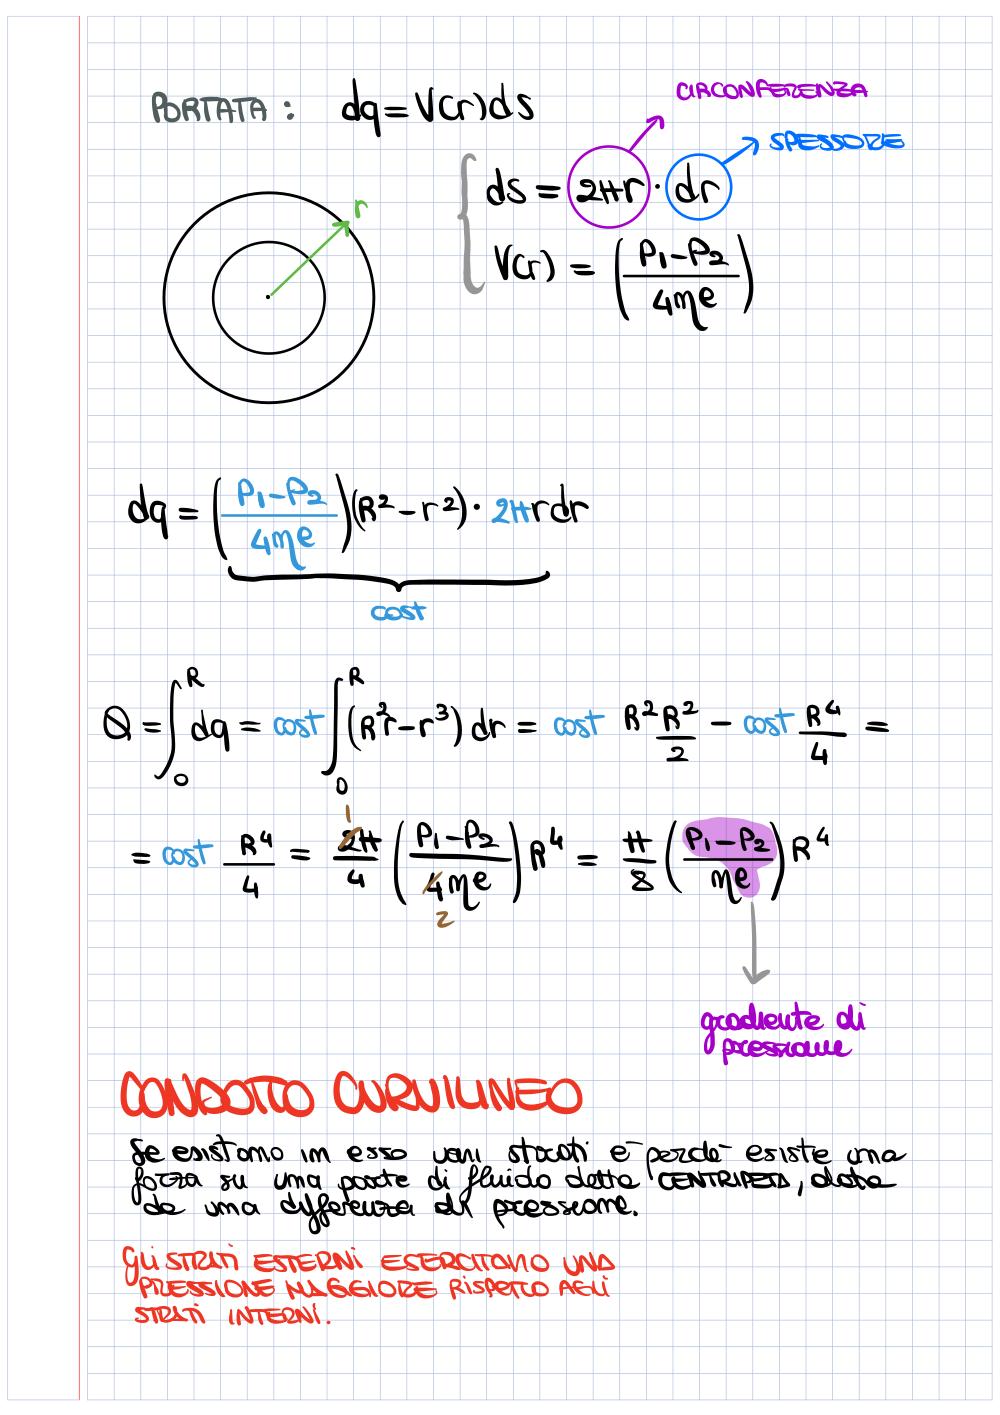 PORTATA : dq = V(r)ds
CIRCONFERENZA
SPESSORE
ds = 2πr · dr
r
V(r) = (P₁-P₂ / 4ηe)
dq = (P₁-P₂ / 4ηe)(R²-r²) · 2πrdr
cost
Q = ∫₀ᴿ dq = cost ∫₀ᴿ (R²r-r³) dr = cost R²R²/2 - cost R⁴/4 =
= cost R⁴/4 = 2π/4 (P₁-P₂ / 4ηe) R⁴ = π/8 (P₁-P₂ / ηe) R⁴
1
2
gradiente di
pressione
CONDOTTO CURVILINEO
Se esistono in esso vari strati è perché esiste una
forza su una parte di fluido detta CENTRIPETA, data
da una differenza di pressione.
Gli STRATI ESTERNI ESERCITANO UNA
PRESSIONE MAGGIORE RISPETTO AGLI
STRATI INTERNI.